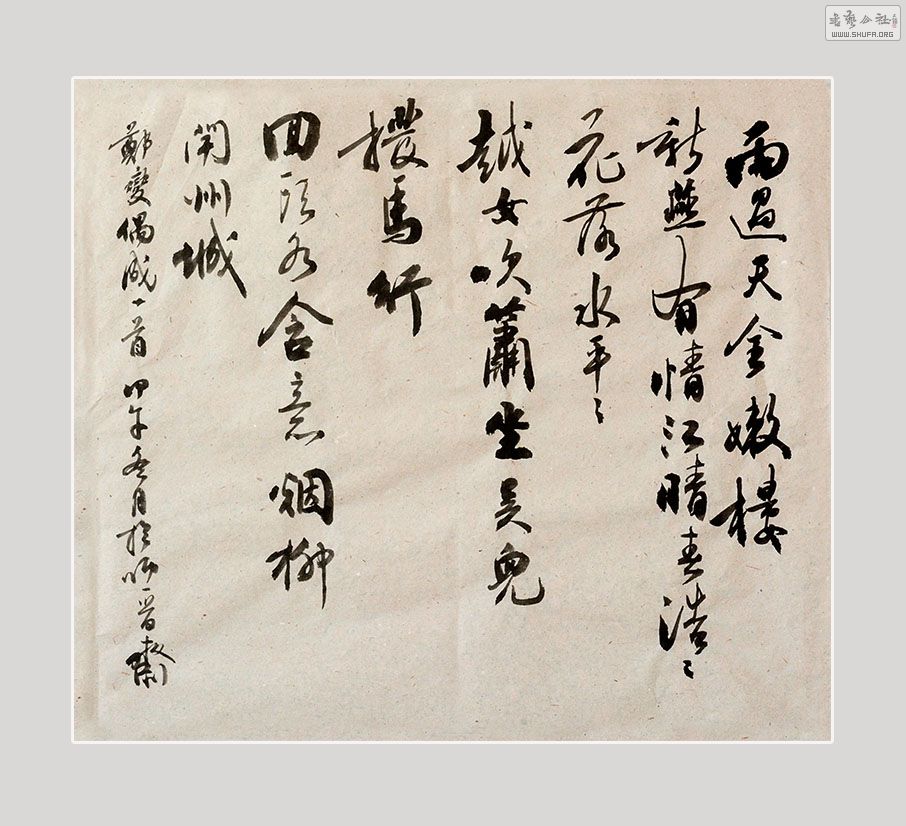 書藝公社
WWW.SHUFA.ORG
雨過天全嫩樓
新燕有情江晴春浩〻
花落水平〻
越女吹蕭坐吳兒
撥馬行
回頭各含意烟柳
開州城
鄭燮偶成一首 甲午冬月於師晉齋